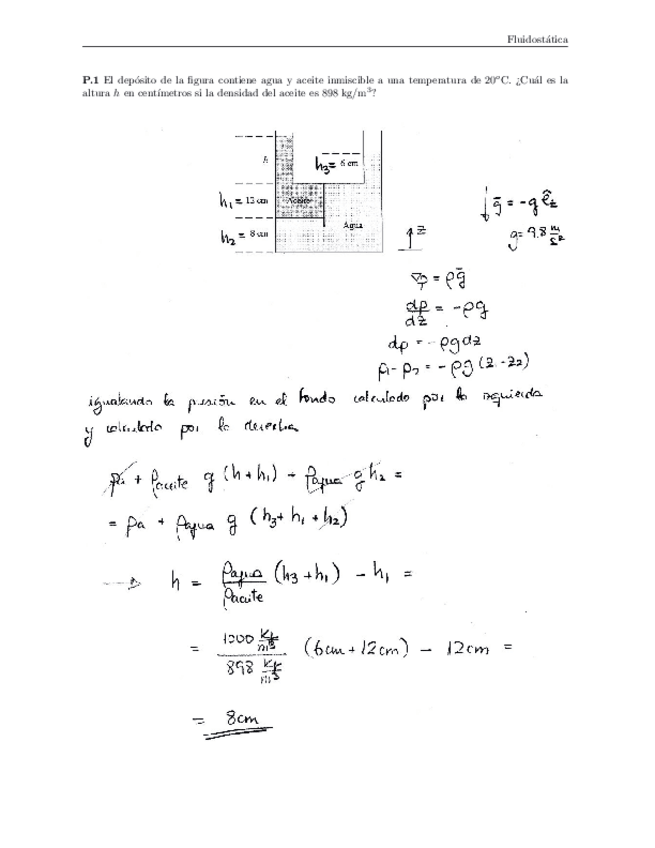 Fluidostática
P.1 El depósito de la figura contiene agua y aceite inmiscible a una temperatura de 20ºC. ¿Cuál es la
altura h en centímetros si la densidad del aceite es 898 kg/m³?
h
h₃= 6 cm
h₁ = 12 cm
Aceite
h₂ = 8 cm
Agua
z
ḡ = -g ê_z
g= 9.8 m/s²
∇p = ρḡ
dp/dz = -ρg
dp = -ρg dz
p₁- p₂ = -ρg (z - z₂)
igualando la presión en el fondo calculado por la izquierda
y calculada por la derecha
pa + ρaceite g (h + h₁) + ρagua g h₂ =
= pa + ρagua g (h₃+ h₁ + h₂)
→ h = ρagua/ρaceite (h₃ + h₁) - h₁ =
= 1000 kg/m³ / 898 kg/m³ (6cm + 12cm) - 12cm =
= 8cm